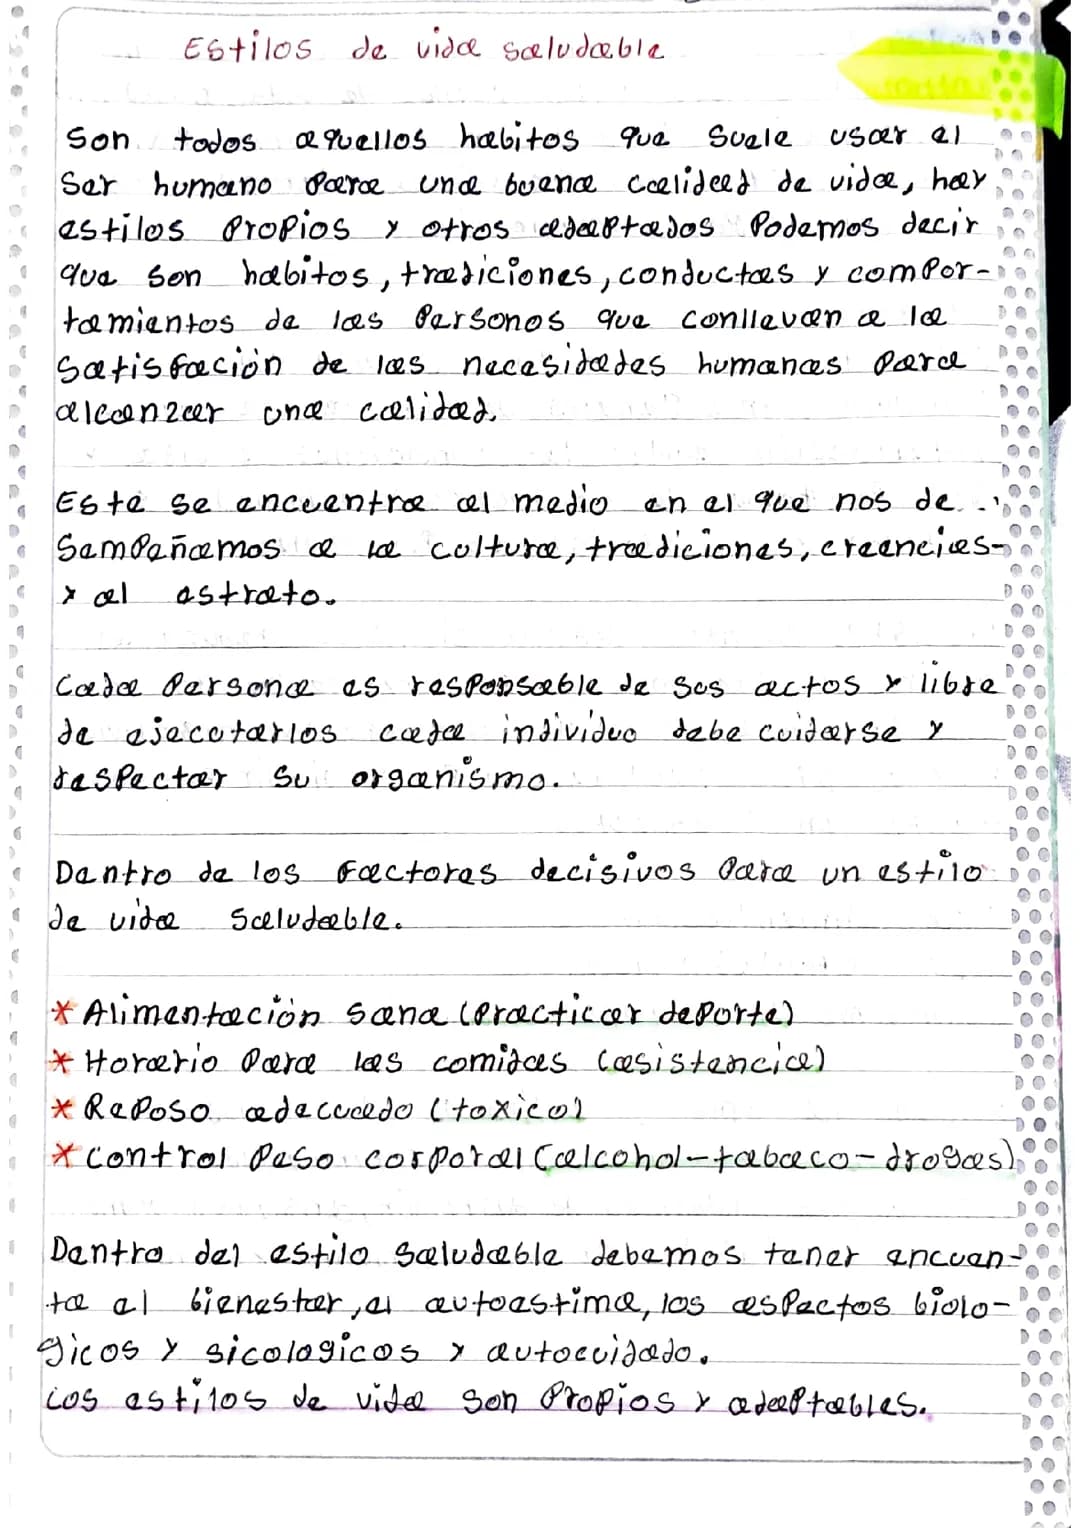 Estilos de vida saludable
Son todos aquellos habitos que suele usar el
Ser humano para una buena calidad de vida, hay
estilos propios y otros adaptados Podemos decir
que son habitos, tradiciones, conductas y compor-
tamientos de las personas que conllevan a la
Satisfación de las necesidades humanas para
alcanzar una calidad.
Este se encuentra al medio en el que nos de
Sempeñamos a la cultura, tradiciones, creencias-
y al estrato.
Cada persona es responsable de sus actos y libre
de ejecutarlos cada individuo debe cuidarse y
respectar su organismo.
Dentro de los Factores decisivos para un estilo
de vida saludable.
* Alimentación sana (practicar deporte)
* Horario para las comidas (asistencia)
* Reposo adecuado (toxico)
* control peso corporal (alcohol-tabaco-drogas)
Dentro del estilo saludable debemos tener encuen-
ta el bienestar, el autoestima, los aspectos biolo-
gicos y sicologicos y autocuidado.
Los estilos de vida son propios y adaptables.